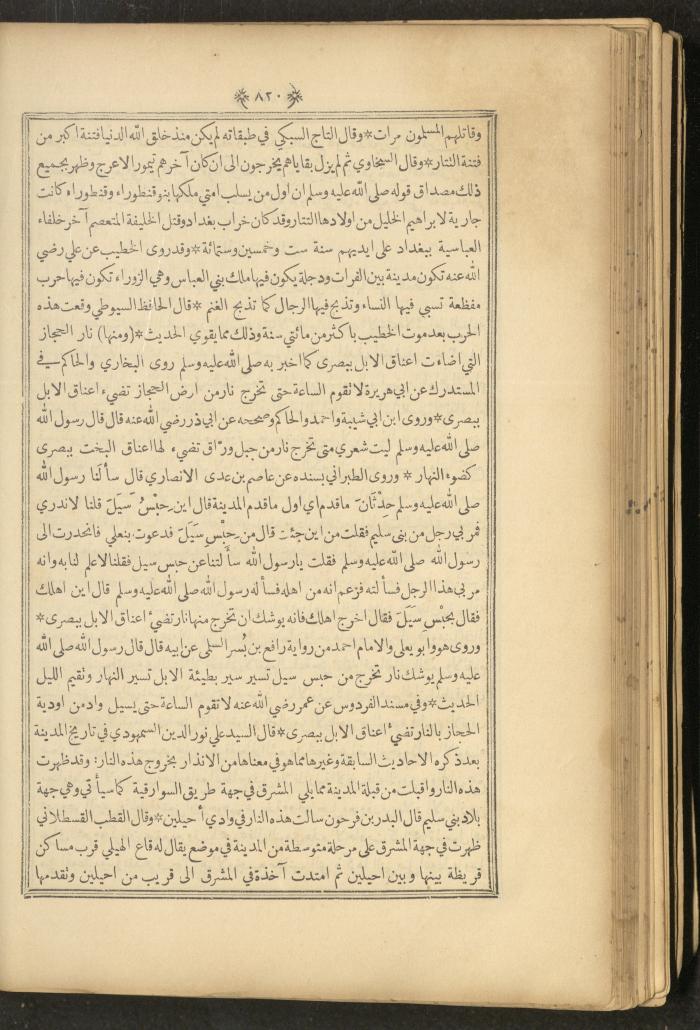 ﴿ ٨٢٠ ﴾
وقاتلهم المسلمون مرات*وقال التاج السبكي في طبقاته لم يكن منذ خلق الله الدنيا فتنة اكبر من
فتنة التتار*وقال السخاوي ثم لم يزل بقاياهم يخرجون الى ان كان آخرهم تيمور الاعرج وظهر بجميع
ذلك مصداق قوله صلى الله عليه وسلم ان اول من يسلب امتي ملكها بنو قنطوراء وقنطوراء كانت
جارية لابراهيم الخليل من اولادها التتار وقد كان خراب بغداد وقتل الخليفة المتعصم آخر خلفاء
العباسية ببغداد على ايديهم سنة ست وخمسين وستمائة*وقد روى الخطيب عن علي رضي
الله عنه تكون مدينة بين الفرات ودجلة يكون فيها ملك بني العباس وهي الزوراء تكون فيها حرب
مفظعة تسبى فيها النساء وتذبح فيها الرجال كما تذبح الغنم *قال الحافظ السيوطي وقعت هذه
الحرب بعد موت الخطيب باكثر من مائتي سنة وذلك مما يقوي الحديث*(ومنها) نار الحجاز
التي اضاءت اعناق الابل ببصرى كما اخبر به صلى الله عليه وسلم روى البخاري والحاكم في
المستدرك عن ابي هريرة لا تقوم الساعة حتى تخرج نار من ارض الحجاز تضيء اعناق الابل
ببصرى*وروى ابن ابي شيبة واحمد والحاكم وصححه عن ابي ذر رضي الله عنه قال قال رسول الله
صلى الله عليه وسلم ليت شعري متى تخرج نار من جبل ورّاق تضيء لها اعناق البخت ببصرى
كضوء النهار * وروى الطبراني بسنده عن عاصم بن عدى الانصاري قال سأَلنا رسول الله
صلى الله عليه وسلم حِدْثَانَ ما قدم اي اول ما قدم المدينة قال اين حِبْسُ سَيَلَ قلنا لا ندري
فمر بي رجل من بني سليم فقلت من اين جئت قال من حِبْسِ سَيَلَ فدعوت بنعلي فانحدرت الى
رسول الله صلى الله عليه وسلم فقلت يا رسول الله سأَلتنا عن حبس سيل فقلنا لا علم لنا به وانه
مر بي هذا الرجل فسأَلته فزعم انه من اهله فسأَله رسول الله صلى الله عليه وسلم قال اين اهلك
فقال بحِبْسِ سَيَلَ فقال اخرج اهلك فانه يوشك ان تخرج منها نار تضيءُ اعناق الابل ببصرى*
وروى هو وابو يعلى والامام احمد من رواية رافع بن بُسر السلمى عن ابيه قال قال رسول الله صلى الله
عليه وسلم يوشك نار تخرج من حبس سيل تسير سير بطيئة الابل تسير النهار وتقيم الليل
الحديث*وفي مسند الفردوس عن عمر رضي الله عنه لا تقوم الساعة حتى يسيل واد من اودية
الحجاز بالنار تضيءُ اعناق الابل ببصرى*قال السيد علي نور الدين السمهودي في تاريخ المدينة
بعد ذكره الاحاديث السابقة وغيرها مما هو في معناها من الانذار بخروج هذه النار: وقد ظهرت
هذه النار واقبلت من قبلة المدينة مما يلي المشرق في جهة طريق السوارقية كما سيأتي وهي جهة
بلاد بني سليم قال البدر بن فرحون سالت هذه النار في وادي أحيلين*وقال القطب القسطلاني
ظهرت في جهة المشرق على مرحلة متوسطة من المدينة في موضع يقال له قاع الهيلي قرب مساكن
قريظة بينها وبين احيلين ثم امتدت آخذة في المشرق الى قريب من احيلين وتقدمها